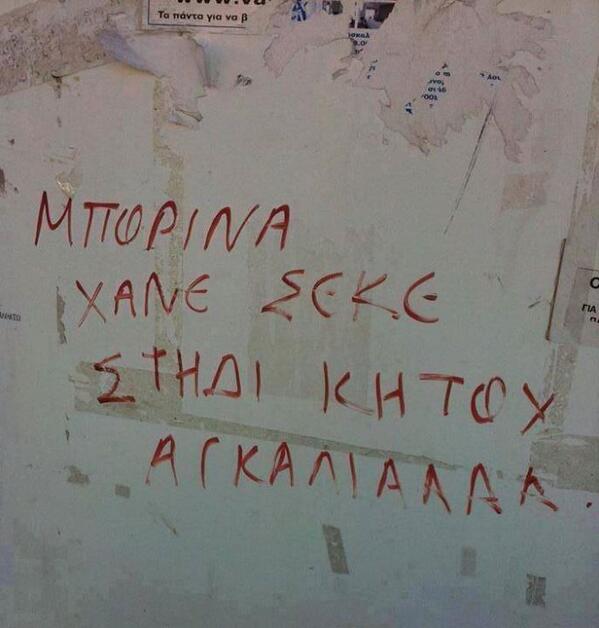 www.va
Τα πάντα για να β
ΜΠΟΡΙΝΑ
ΧΑΝΕ ΣΕΚΕ
ΣΤΗΔΙ ΚΗΤΟΥ
ΑΓΚΑΛΙΑΛΛΑ.
ΓΙΑ